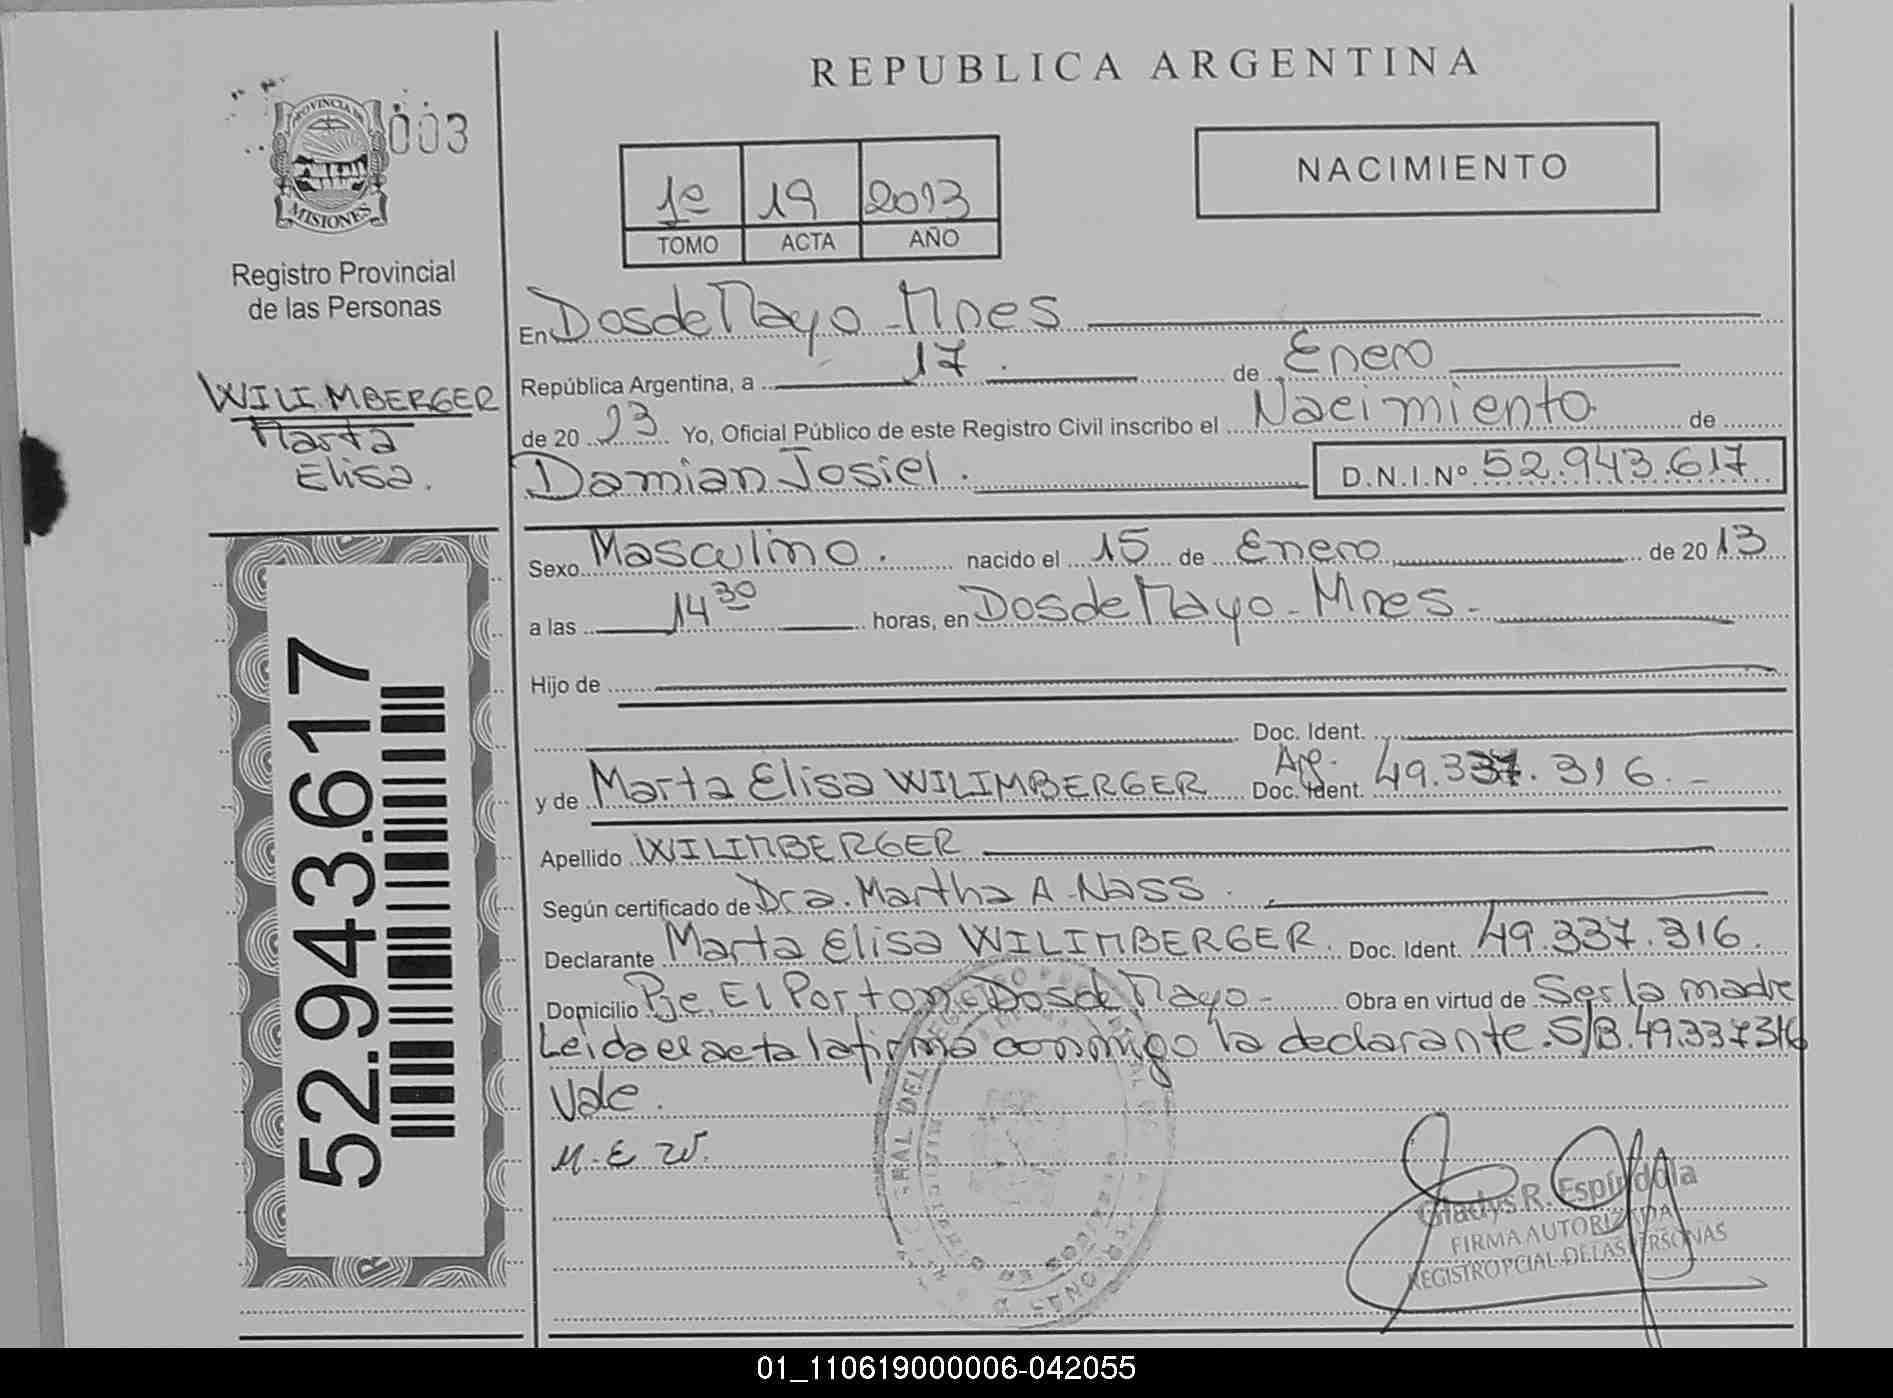 REPUBLICA ARGENTINA
003
PROVINCIA DE
MISIONES
Registro Provincial
de las Personas
WILIMBERGER
Marta
Elisa.
52.943.617
1º 19 2013
TOMO ACTA AÑO
NACIMIENTO
En Dos de Mayo - Mnes
República Argentina, a 17 de Enero
de 20 13 Yo, Oficial Público de este Registro Civil inscribo el Nacimiento de
Damian Josiel. D.N.I.Nº 52.943.617
Sexo Masculino. nacido el 15 de Enero de 20 13
a las 14 30 horas, en Dos de Mayo - Mnes -
Hijo de
Doc. Ident.
y de Marta Elisa WILIMBERGER Doc. Ident. 49.337.316.-
Apellido WILIMBERGER
Según certificado de Dra. Martha A. Nass.
Declarante Marta Elisa WILIMBERGER. Doc. Ident. 49.337.316.
Domicilio Pje. El Porton - Dos de Mayo - Obra en virtud de Ser la madre
Leida el acta la firma conmigo la declarante. S/B. 49.337316
Vale.
M. E W.
Gladys R. Espíndola
FIRMA AUTORIZADA
REGISTRO PCIAL. DE LAS PERSONAS
01_110619000006-042055